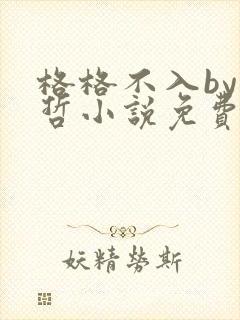 格格不入by
哲小說免費
妖精勞斯